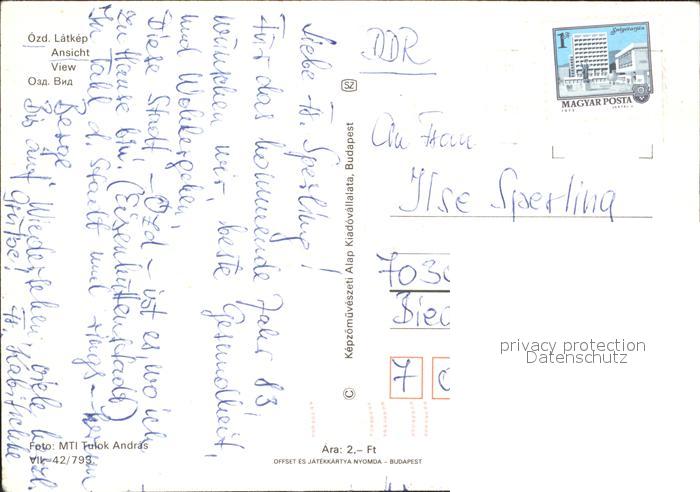 Ózd. Látkép
Ansicht
View
Озд. Вид
Liebe H. Sperling!
Für das kommende Jahr 83,
wünschen wir, beste Gesundheit,
und Wohlergehen,
Diese Stadt – Ózd – ist es, wo ich
zu Hause bin. (Eisenhüttenstadt)
Im Tahl d. Stadt und rings-herum
Berge
Bis auf Wiedersehen, viele herzl.
Grüße!
Foto: MTI Tulok András
VII-42/793
SZ
Képzőművészeti Alap Kiadóvállalata, Budapest
©
Ára: 2,– Ft
OFFSET ÉS JÁTÉKKÁRTYA NYOMDA – BUDAPEST
DDR
1 Ft
Salgótarján
MAGYAR POSTA
1973
An Frau
Ilse Sperling
703
Bie
7 0
privacy protection
Datenschutz